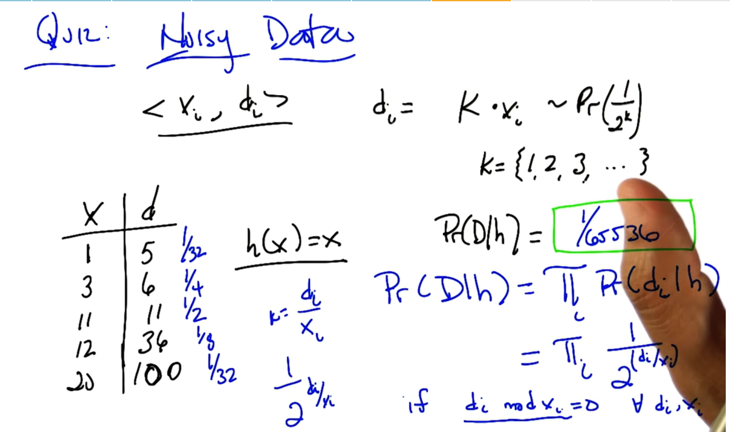 Quiz: Noisy Data
< xᵢ, dᵢ > dᵢ = K · xᵢ ~ Pr(1/2ᵏ)
K = {1, 2, 3, ... }
x d
1 5 1/32
3 6 1/4
11 11 1/2
12 36 1/8
20 100 1/32
h(x) = x
K = dᵢ/xᵢ
1/2^(dᵢ/xᵢ)
Pr(D|h) = 1/65536
Pr(D|h) = ∏ᵢ Pr(dᵢ|h)
= ∏ᵢ 1/2^(dᵢ/xᵢ)
if dᵢ mod xᵢ = 0 ∀ dᵢ, xᵢ